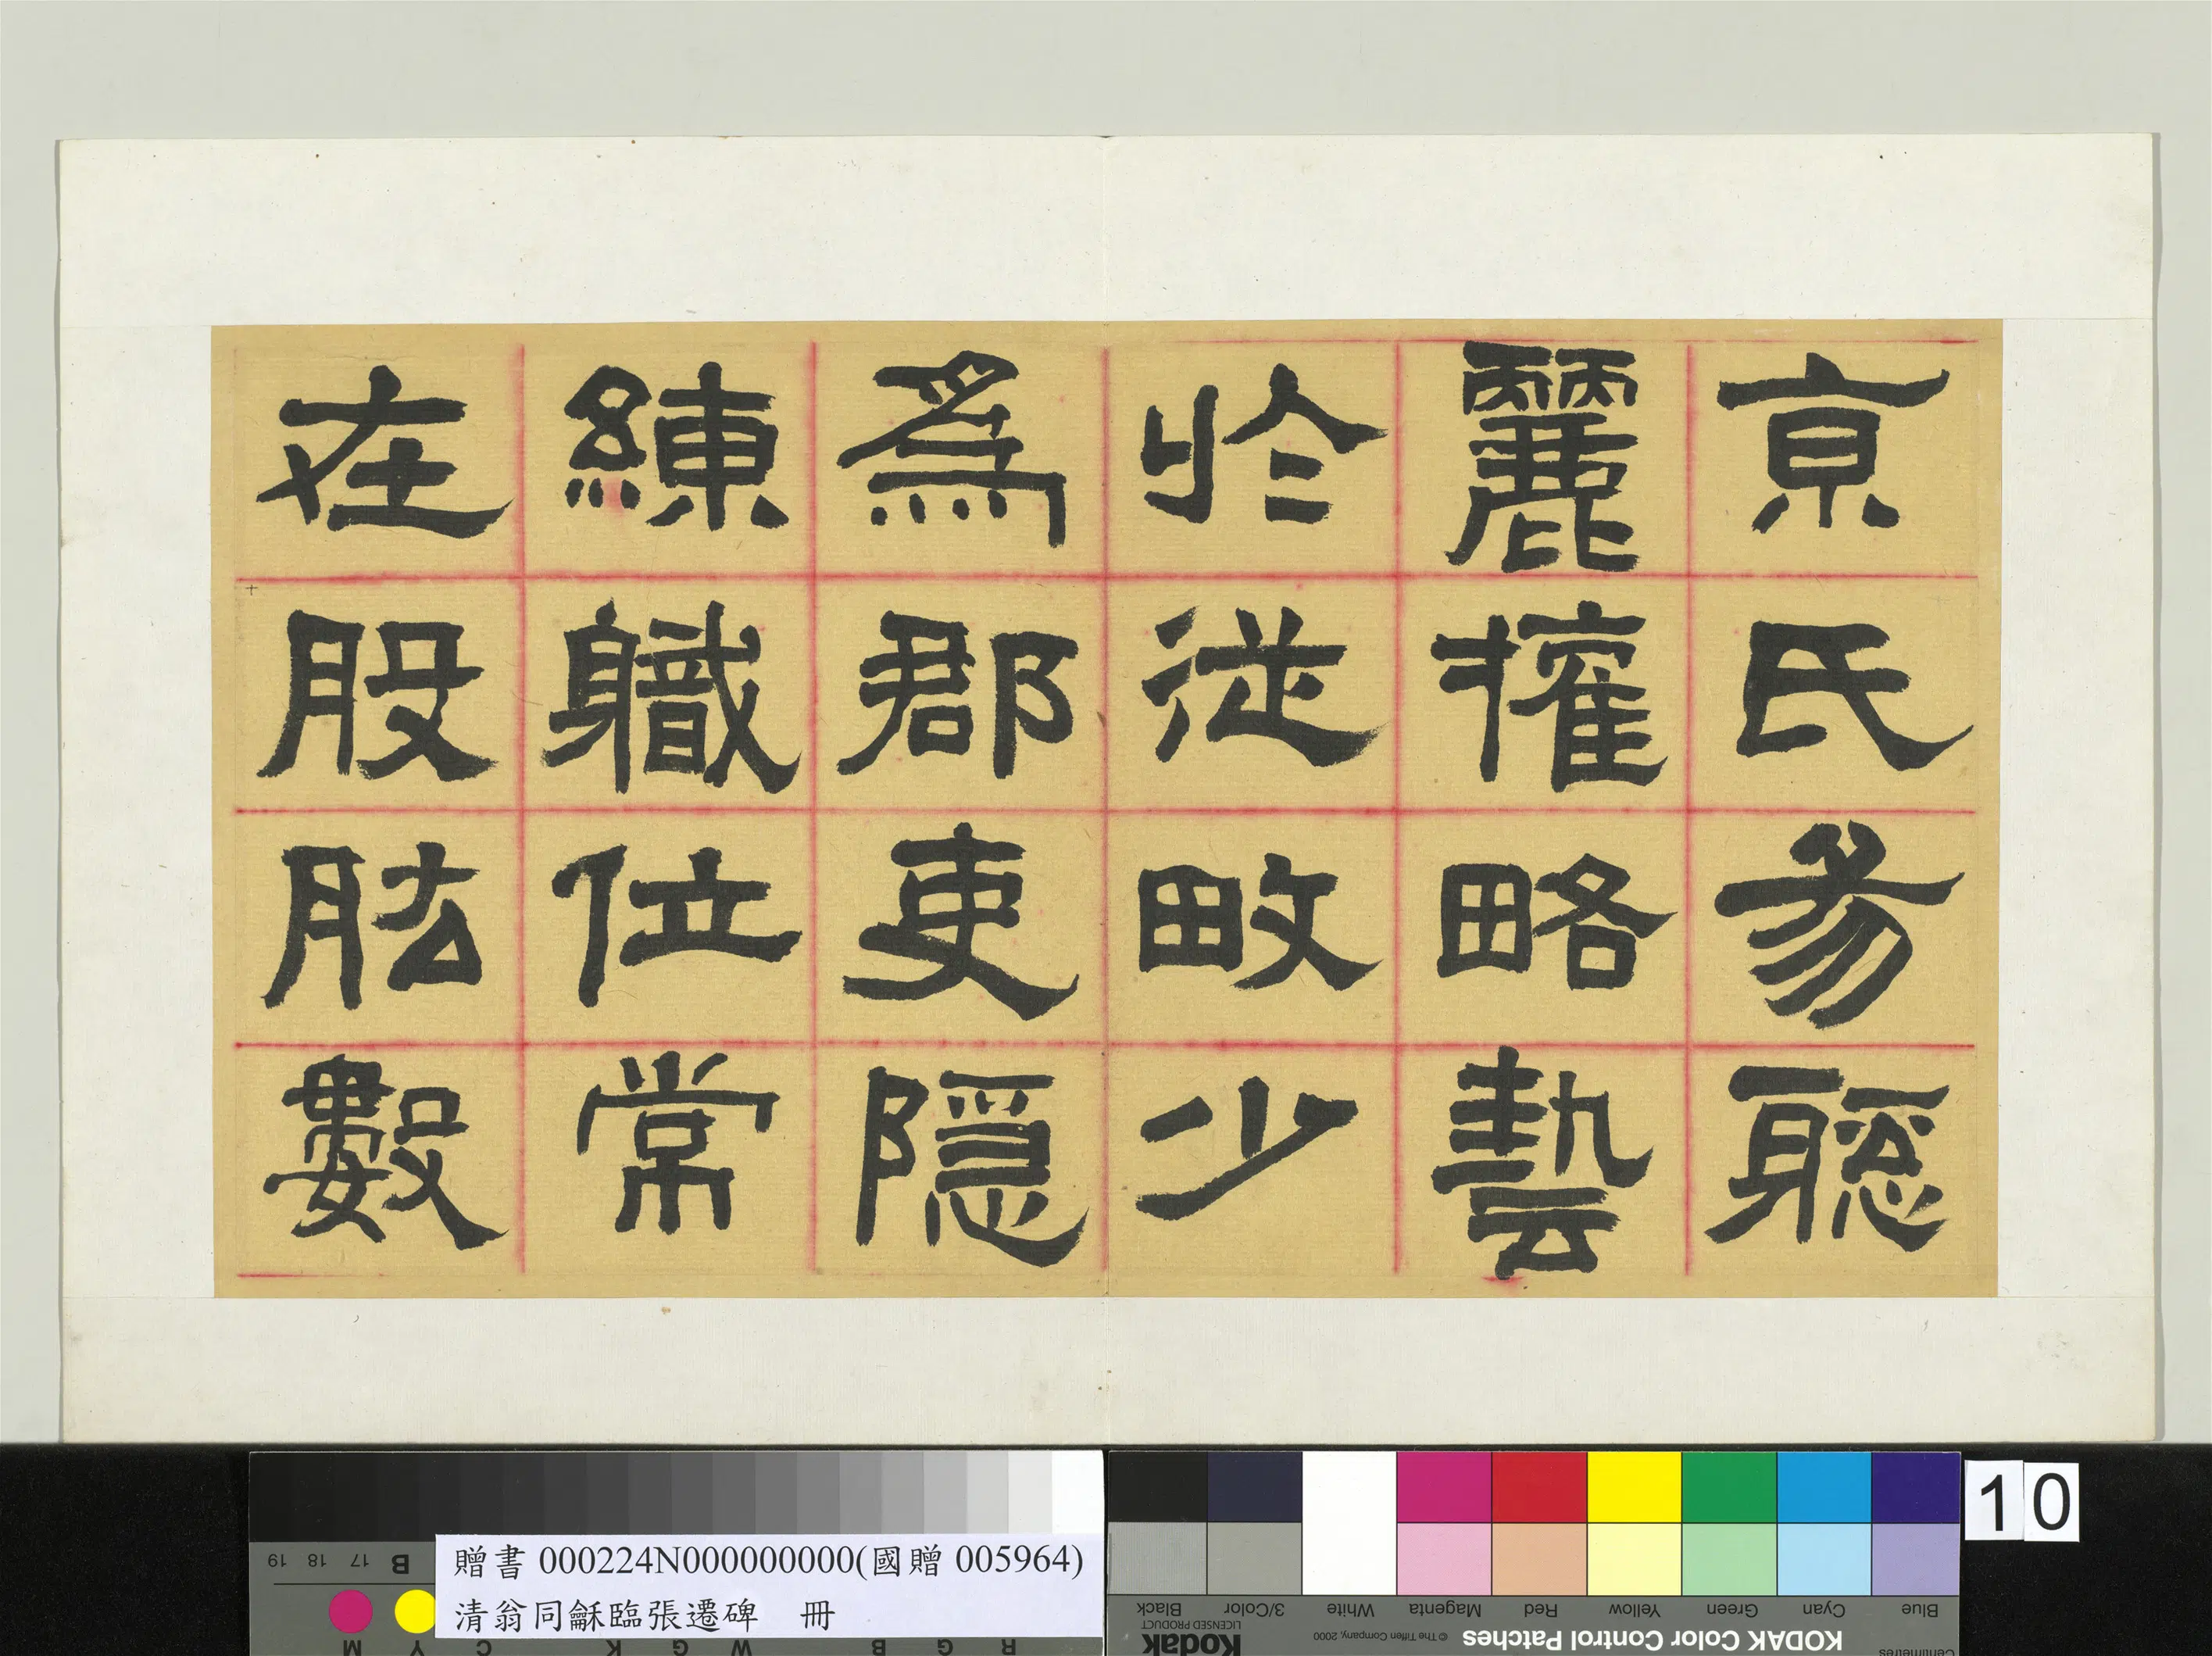 亰氏易聰
麗搉略藝
於從畋少
爲郡吏隱
練軄位常
在股肱數
贈書 000224N000000000(國贈 005964)
清翁同龢臨張遷碑　冊
10
KODAK Color Control Patches
© The Tiffen Company, 2000
Kodak
LICENSED PRODUCT
Blue Cyan Green Yellow Red Magenta White 3/Color Black
Centimetres
R G B W G K C Y M
B 17 18 19